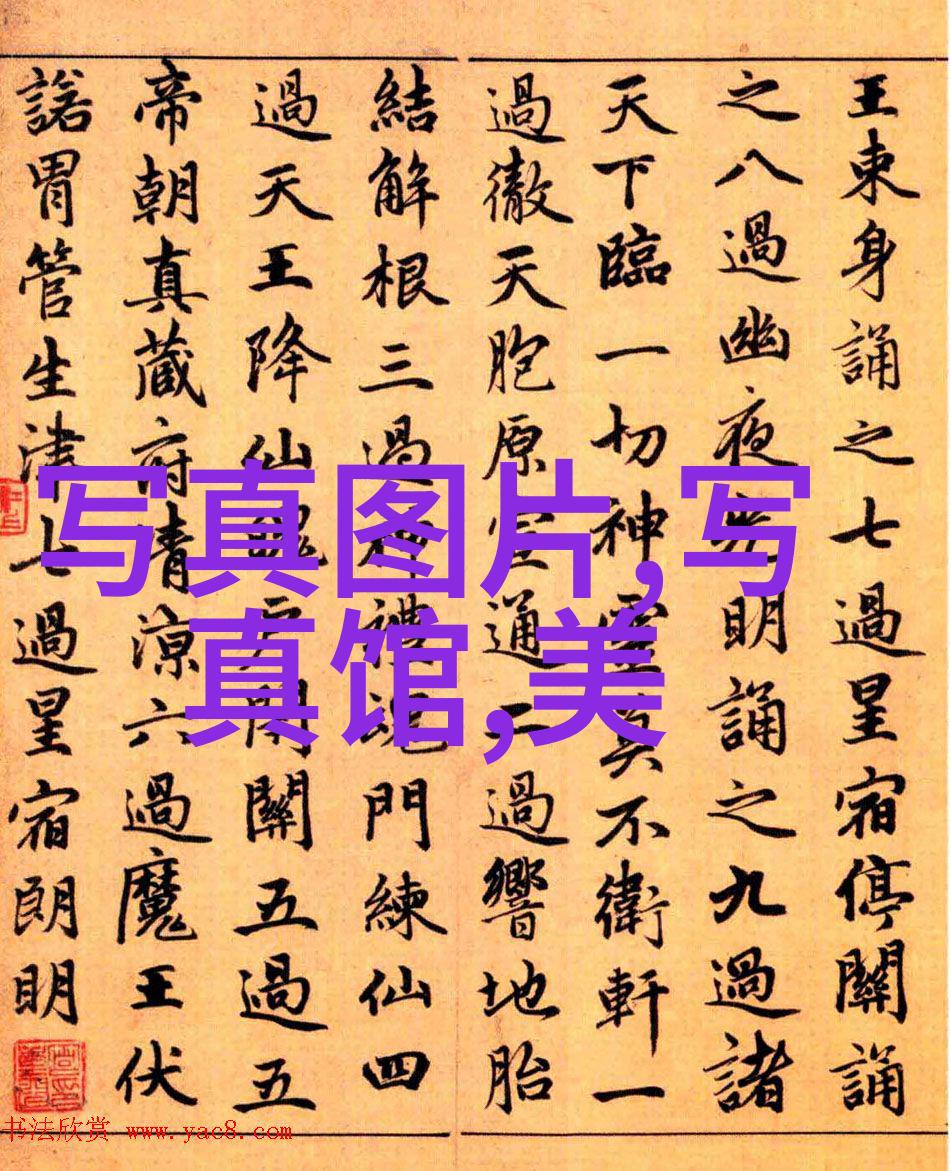 王束身誦之七過星宿停關誦
之八過幽夜明誦之九過諸
天下臨一切神不衛軒一
過徹天胞原通二過響地胎
結解根三過神禮魂門練仙四
過天王降仙戶開關五過五
帝朝真藏府清涼六過魔王伏
諾胃管生津七過星宿朗明
写真图片,写
真馆,美
书法欣赏 www.yac8.com